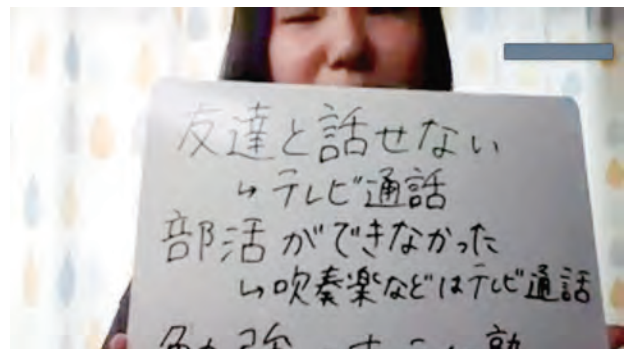 友達と話せない
↳テレビ通話
部活ができなかった
↳吹奏楽などはテレビ通話